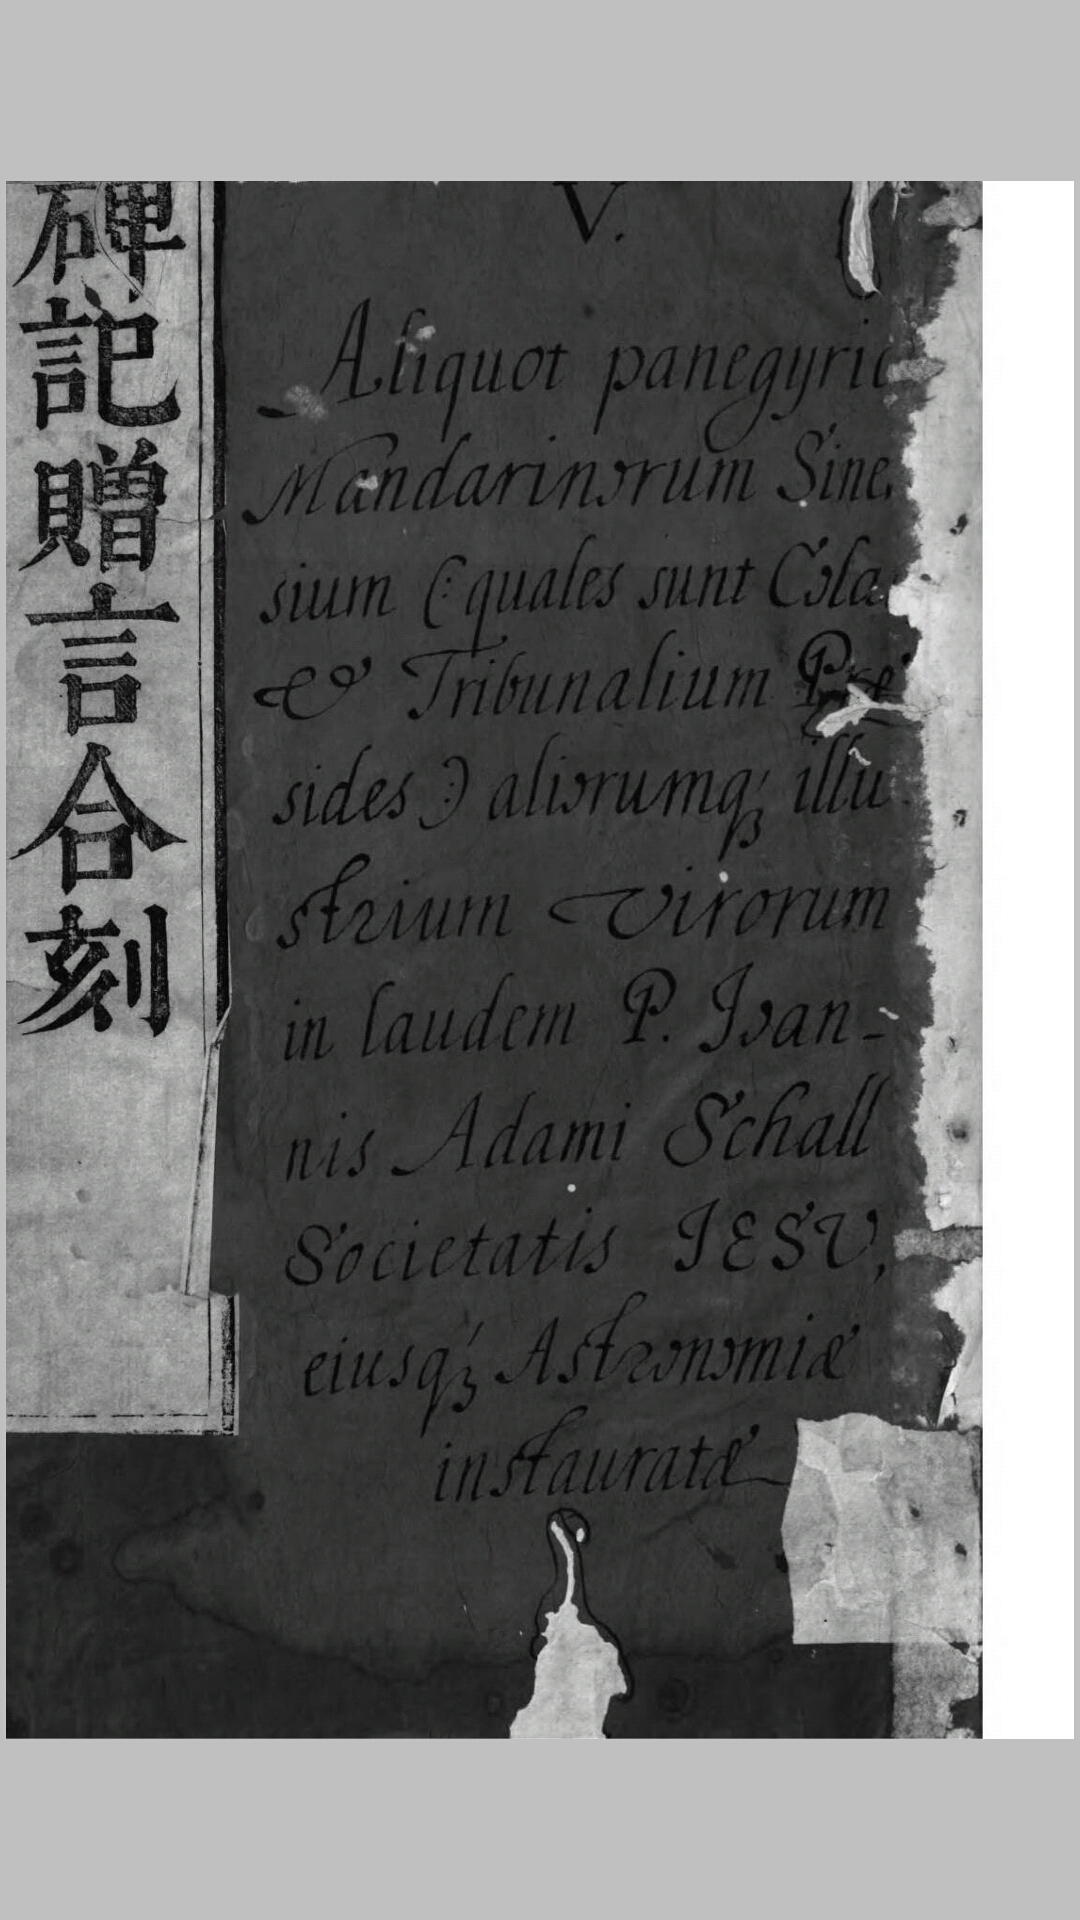 碑記贈言合刻
V.
Aliquot panegyric
Mandarinorum Sine
sium (: quales sunt Cola
& Tribunalium Præ
sides :) aliorumq́ꝫ illu
strium virorum
in laudem P. Joan-
nis Adami Schall
Societatis JESV,
eiusq́ꝫ Astronomiæ
instauratæ